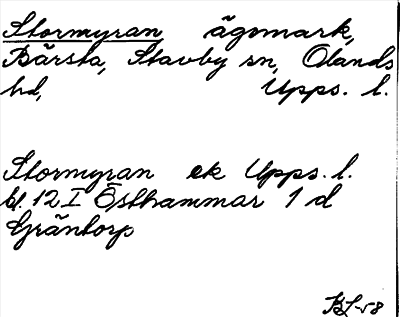 Stormyran ägomark,
Bärsta, Stavby sn, Olands
hd, Upps. l.
Stormyran ek Upps. l.
bl. 12 I Östhammar 1 d
Gräntorp